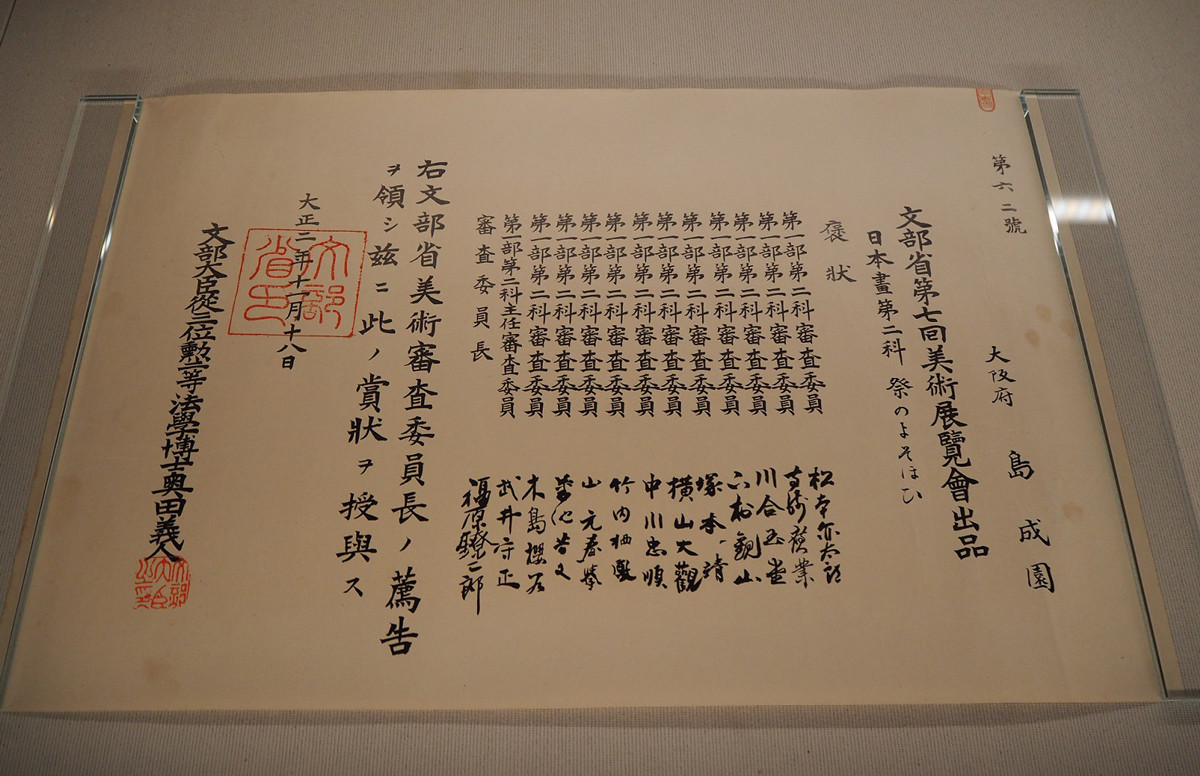 第六二號
大阪府 島成園
文部省第七回美術展覽會出品
日本畫第二科 祭のよそほひ
褒狀
第一部第二科審査委員 松本亦太郎
第一部第二科審査委員 寺崎廣業
第一部第二科審査委員 川合玉堂
第一部第二科審査委員 下村觀山
第一部第二科審査委員 塚本靖
第一部第二科審査委員 横山大觀
第一部第二科審査委員 中川忠順
第一部第二科審査委員 竹内栖鳳
第一部第二科審査委員 山元春擧
第一部第二科審査委員 菊池芳文
第一部第二科審査委員 木島櫻谷
第一部第二科主任審査委員 武井守正
審査委員長 福原鐐二郎
右文部省美術審査委員長ノ薦告
ヲ領シ茲ニ此ノ賞狀ヲ授與ス
大正二年十一月十八日
文部省印
文部大臣從三位勲一等法學博士奥田義人
文部大臣之印